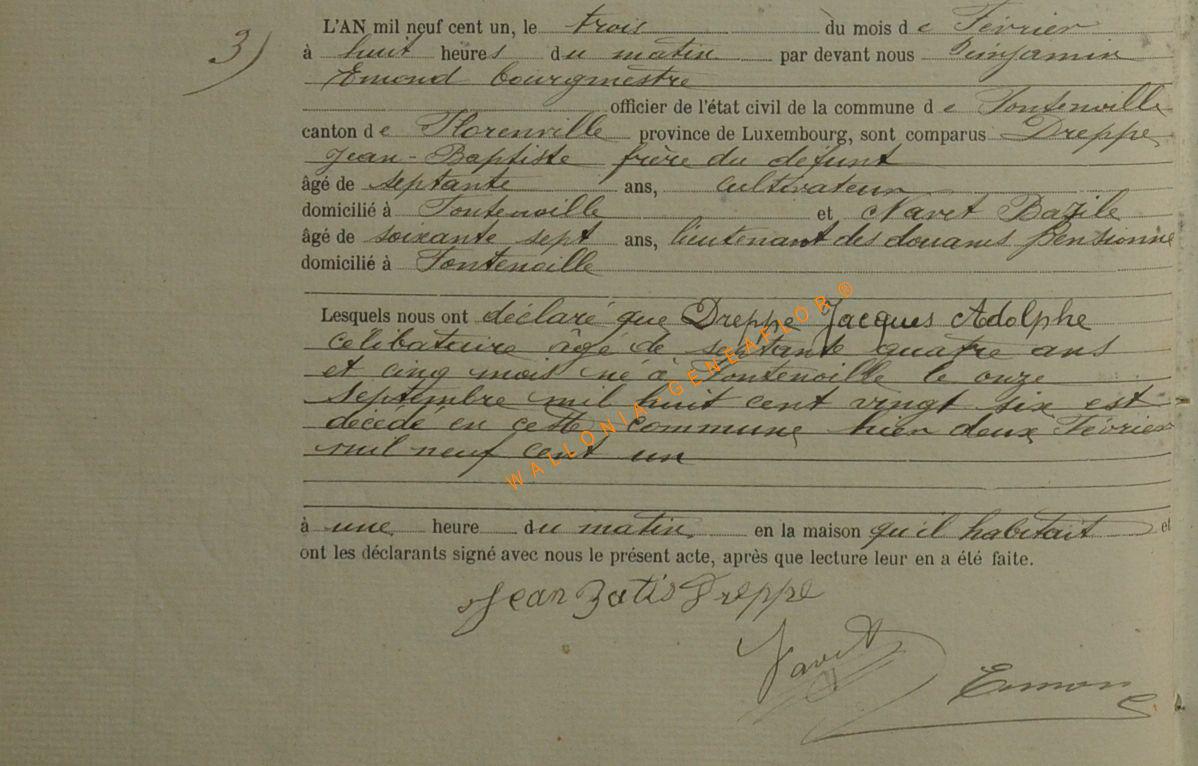 3)
L'AN mil neuf cent un, le trois du mois de Février
à huit heures du matin par devant nous Benjamin
Emond bourgmestre
officier de l'état civil de la commune de Fontenoille
canton de Florenville province de Luxembourg, sont comparus Dreppe
Jean-Baptiste frère du défunt
âgé de septante ans, cultivateur
domicilié à Fontenoille et Navet Bazile
âgé de soixante sept ans, lieutenant des douanes pensionné
domicilié à Fontenoille
Lesquels nous ont déclaré que Dreppe Jacques Adolphe
célibataire âgé de septante quatre ans
et cinq mois né à Fontenoille le onze
Septembre mil huit cent vingt six est
décédé en cette commune hier deux Février
mil neuf cent un
WALLONIA-GENEAFLOB®
à une heure du matin en la maison qu'il habitait et
ont les déclarants signé avec nous le présent acte, après que lecture leur en a été faite.
Jean Batis Dreppe
Navet
Emond